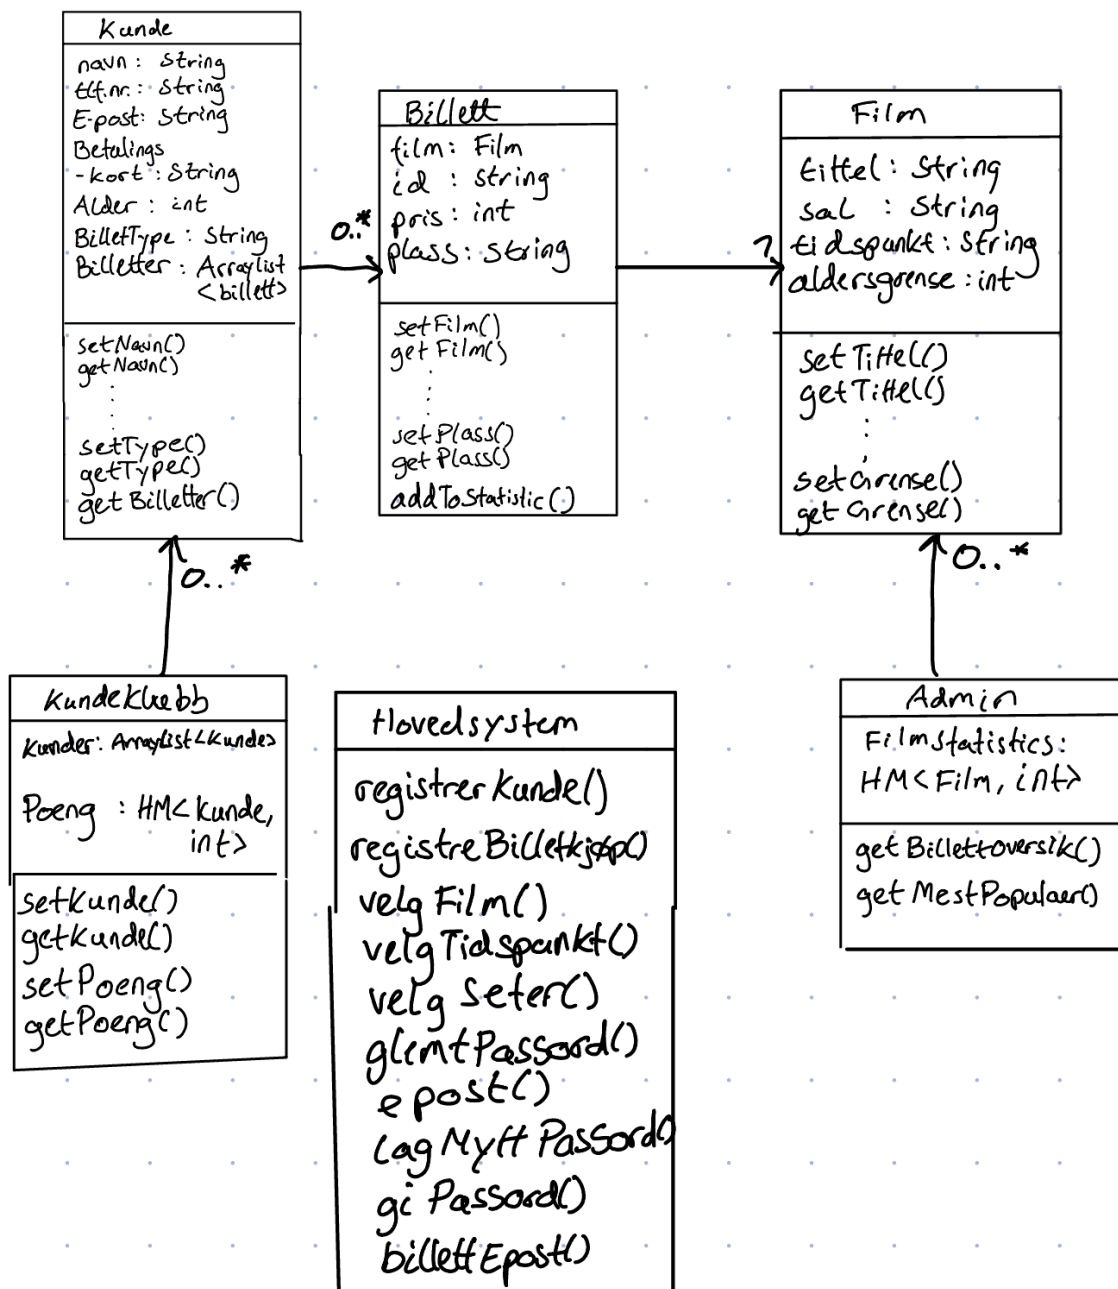 Kunde
navn : String
tlf.nr. : String
E-post: String
Betalings
-kort : String
Alder : int
BilletType : String
Billetter : Arraylist
<billett>
setNavn()
getNavn()
:
:
setType()
getType()
getBilletter()
0..*
Billett
film: Film
id : String
pris : int
plass : String
setFilm()
getFilm()
:
:
setPlass()
getPlass()
addToStatistic()
1
Film
tittel : String
sal : String
tidspunkt : String
aldersgrense : int
setTittel()
getTittel()
:
setGrense()
getGrense()
0..*
0..*
KundeKlubb
Kunder: Arraylist<Kunde>
Poeng : HM<Kunde,
int>
setKunde()
getKunde()
setPoeng()
getPoeng()
Hovedsystem
registrerKunde()
registreBilletkjøp()
velgFilm()
velgTidspunkt()
velgSeter()
glemtPassord()
epost()
lagNyttPassord()
giPassord()
billettEpost()
Admin
FilmStatistics:
HM<Film, int>
getBillettoversik()
getMestPopulaer()